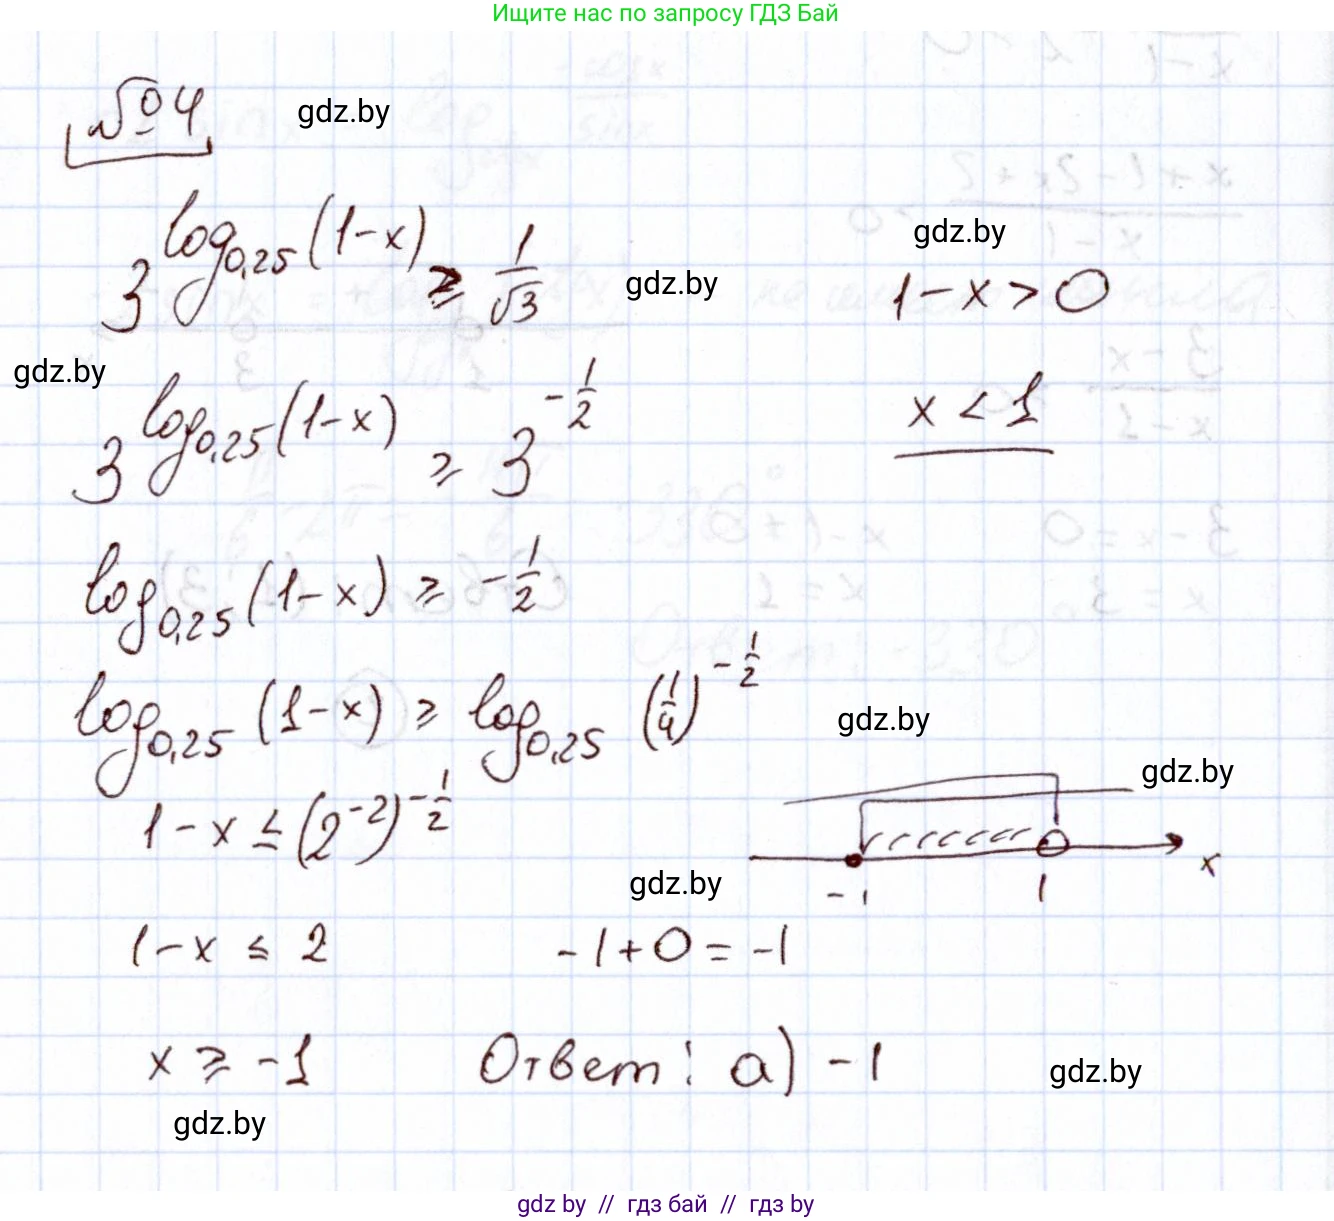 Ищите нас по запросу ГДЗ Бай
№4
gdz.by
3^{log_{0,25}(1-x)} ≥ 1/√3
gdz.by
gdz.by
1-x>0
gdz.by
3^{log_{0,25}(1-x)} ≥ 3^{-1/2}
x < 1
log_{0,25}(1-x) ≥ -1/2
log_{0,25}(1-x) ≥ log_{0,25}(1/4)^{-1/2}
gdz.by
gdz.by
1-x ≤ (2^{-2})^{-1/2}
x
gdz.by
-1
1
1-x ≤ 2
-1+0=-1
x ≥ -1
Ответ: а) -1
gdz.by
gdz.by
gdz by // гдз бай // гдз by